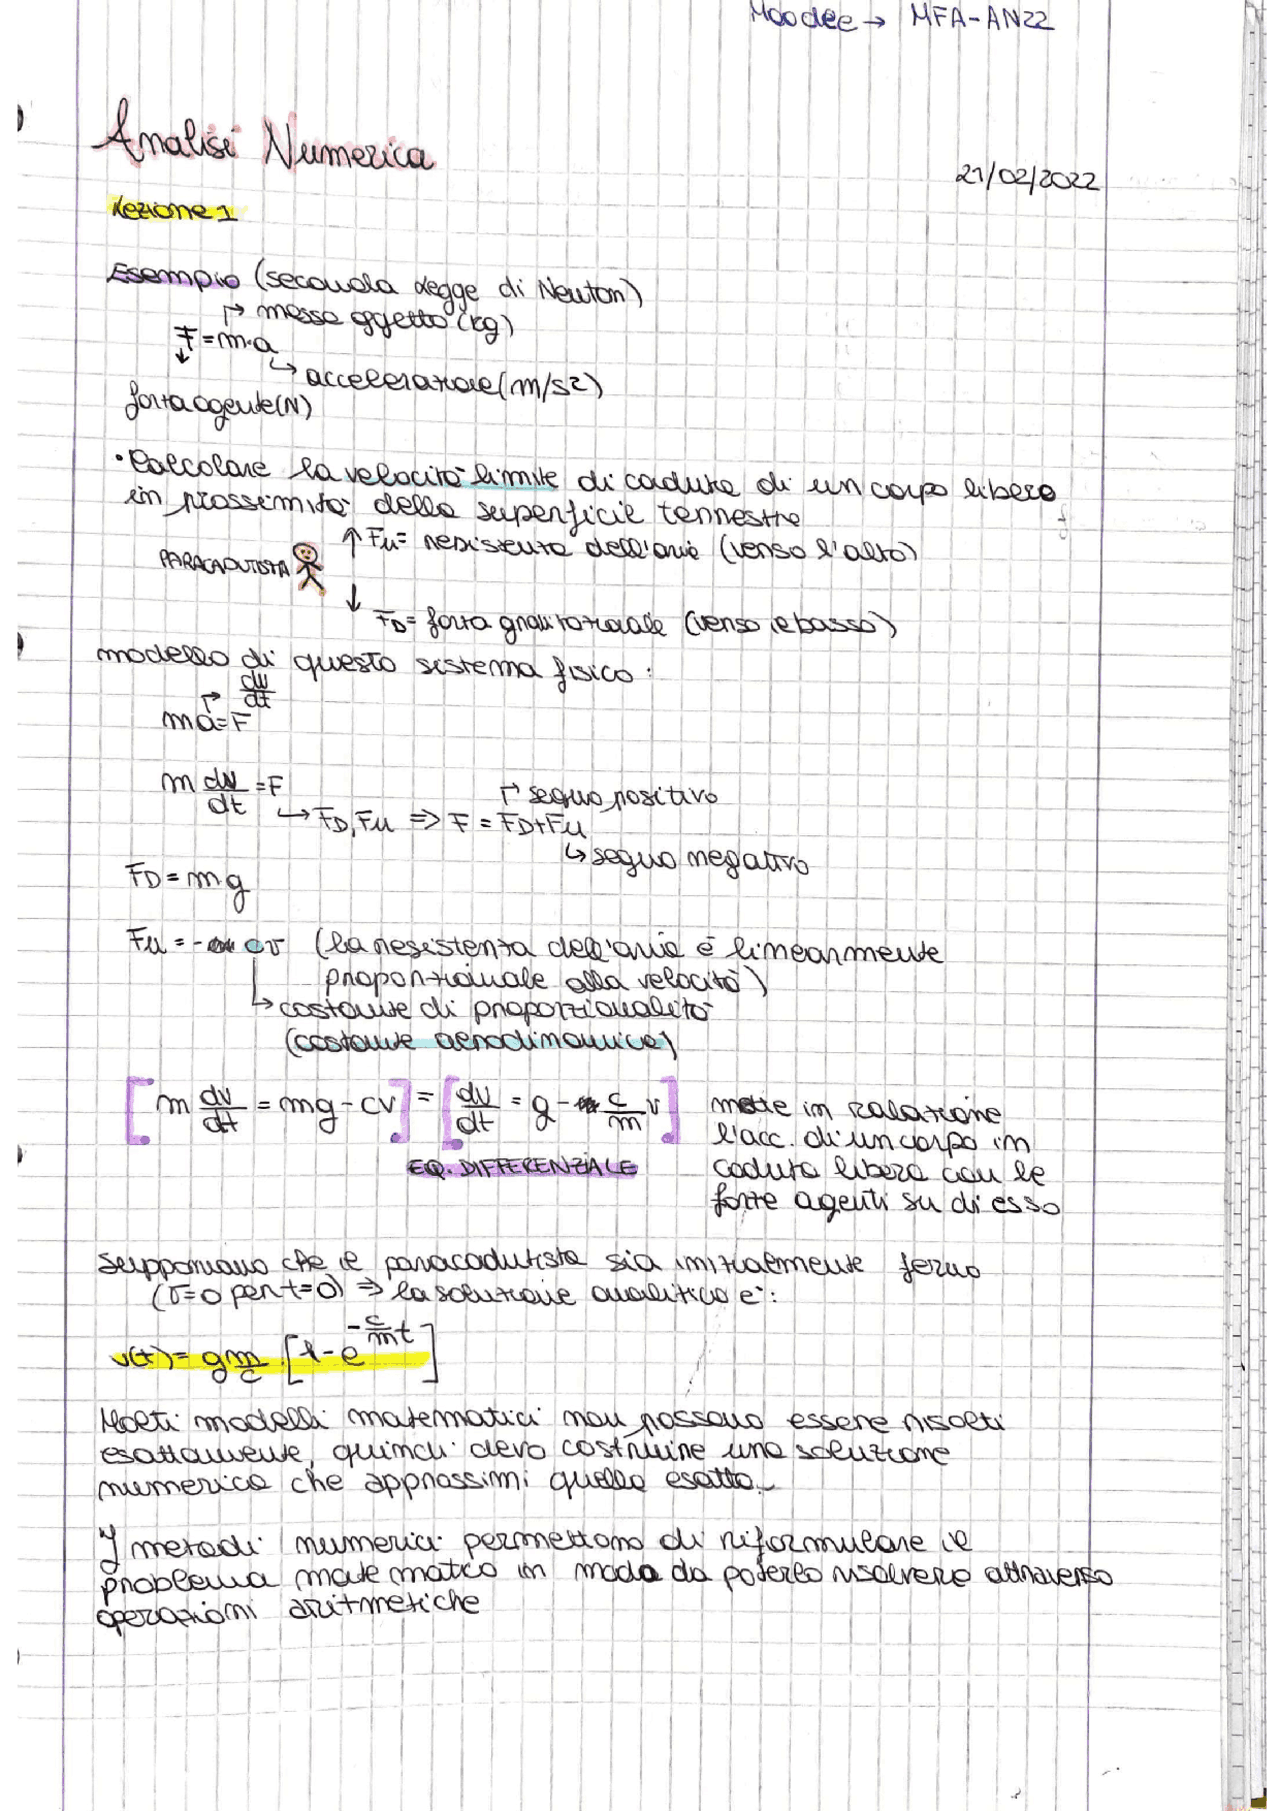 Moodle → MFA-AN22
Analisi Numerica
21/02/2022
Lezione 1
Esempio (seconda legge di Newton)
↱ massa oggetto (kg)
F = m·a
↳ accelerazione (m/s²)
forza agente (N)
• Calcolare la velocità limite di caduta di un corpo libero
in prossimità della superficie terrestre
↑ Fu = resistenza dell'aria (verso l'alto)
PARACADUTISTA
↓ FD = forza gravitazionale (verso il basso)
modello di questo sistema fisico:
↱ dv/dt
ma = F
m dv/dt = F
↱ segno positivo
↳ FD, Fu => F = FD + Fu
↳ segno negativo
FD = mg
Fu = - cv (la resistenza dell'aria è linearmente
proporzionale alla velocità)
↳ costante di proporzionalità
(costante aerodinamica)
[m dv/dt = mg - cv] = [dv/dt = g - c/m v] mette in relazione
l'acc. di un corpo in
EQ. DIFFERENZIALE caduta libera con le
forze agenti su di esso
Supponiamo che il paracadutista sia inizialmente fermo
(v=0 per t=0) => la soluzione analitica è:
v(t) = gm/c [1 - e^(-c/m t)]
Molti modelli matematici non possono essere risolti
esattamente, quindi devo costruire una soluzione
numerica che approssimi quella esatta.
I metodi numerici permettono di riformulare il
problema matematico in modo da poterlo risolvere attraverso
operazioni aritmetiche